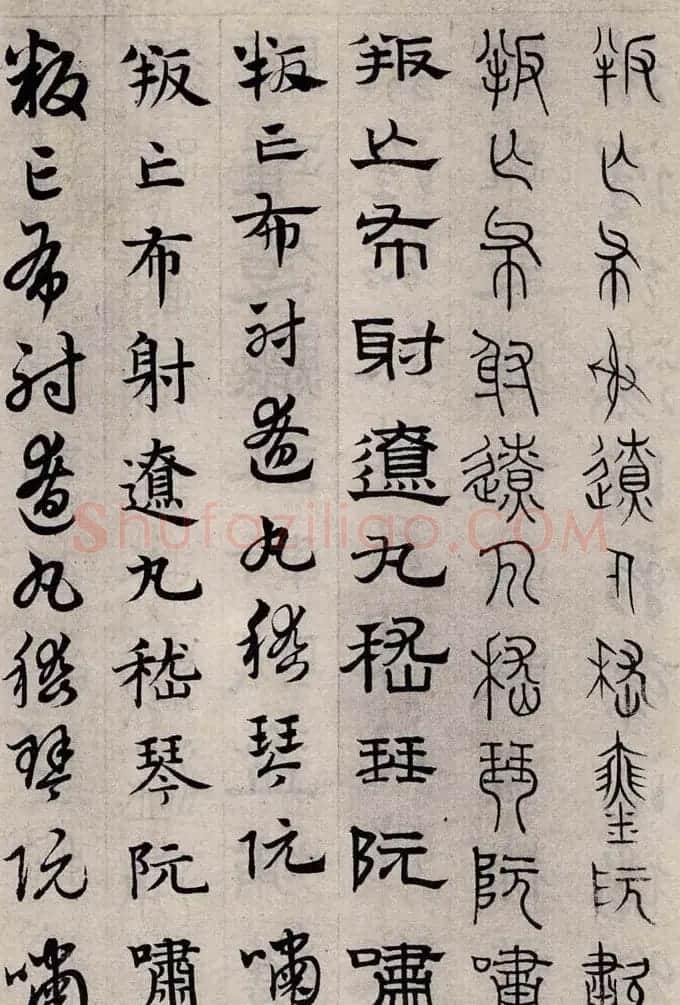 叛亡布射遼丸嵇琴阮嘯
叛亡布射遼丸嵇琴阮嘯
叛亡布射遼丸嵇琴阮嘯
叛亡布射遼丸嵇琴阮嘯
叛亡布射遼丸嵇琴阮嘯
叛亡布射遼丸嵇琴阮嘯
Shufaziliao.COM